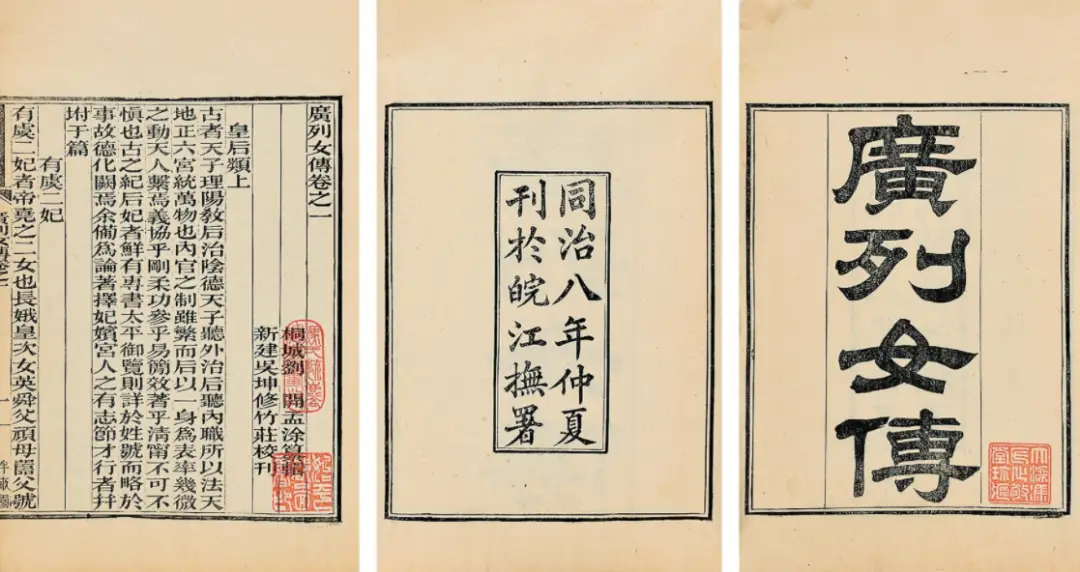 廣列女傳
同治八年仲夏
刊於皖江撫署
廣列女傳卷之一
桐城劉 開孟涂纂
新建吳坤修竹莊校刊
皇后類上
古者天子理陽教后治陰德天子聽外治后聽內職所以法天
地正六宮統萬物也內官之制雖繁而后以一身為表率幾微
之動天人繫焉義協乎剛柔功參乎易簡效著乎清甯不可不
慎也古之紀后妃者鮮有專書太平御覽則詳於姓號而略於
事故德化闕焉余備為論著擇妃嬪宮人之有志節才行者幷
坿于篇
有虞二妃
有虞二妃者帝堯之二女也長娥皇次女英舜父頑母嚚父號